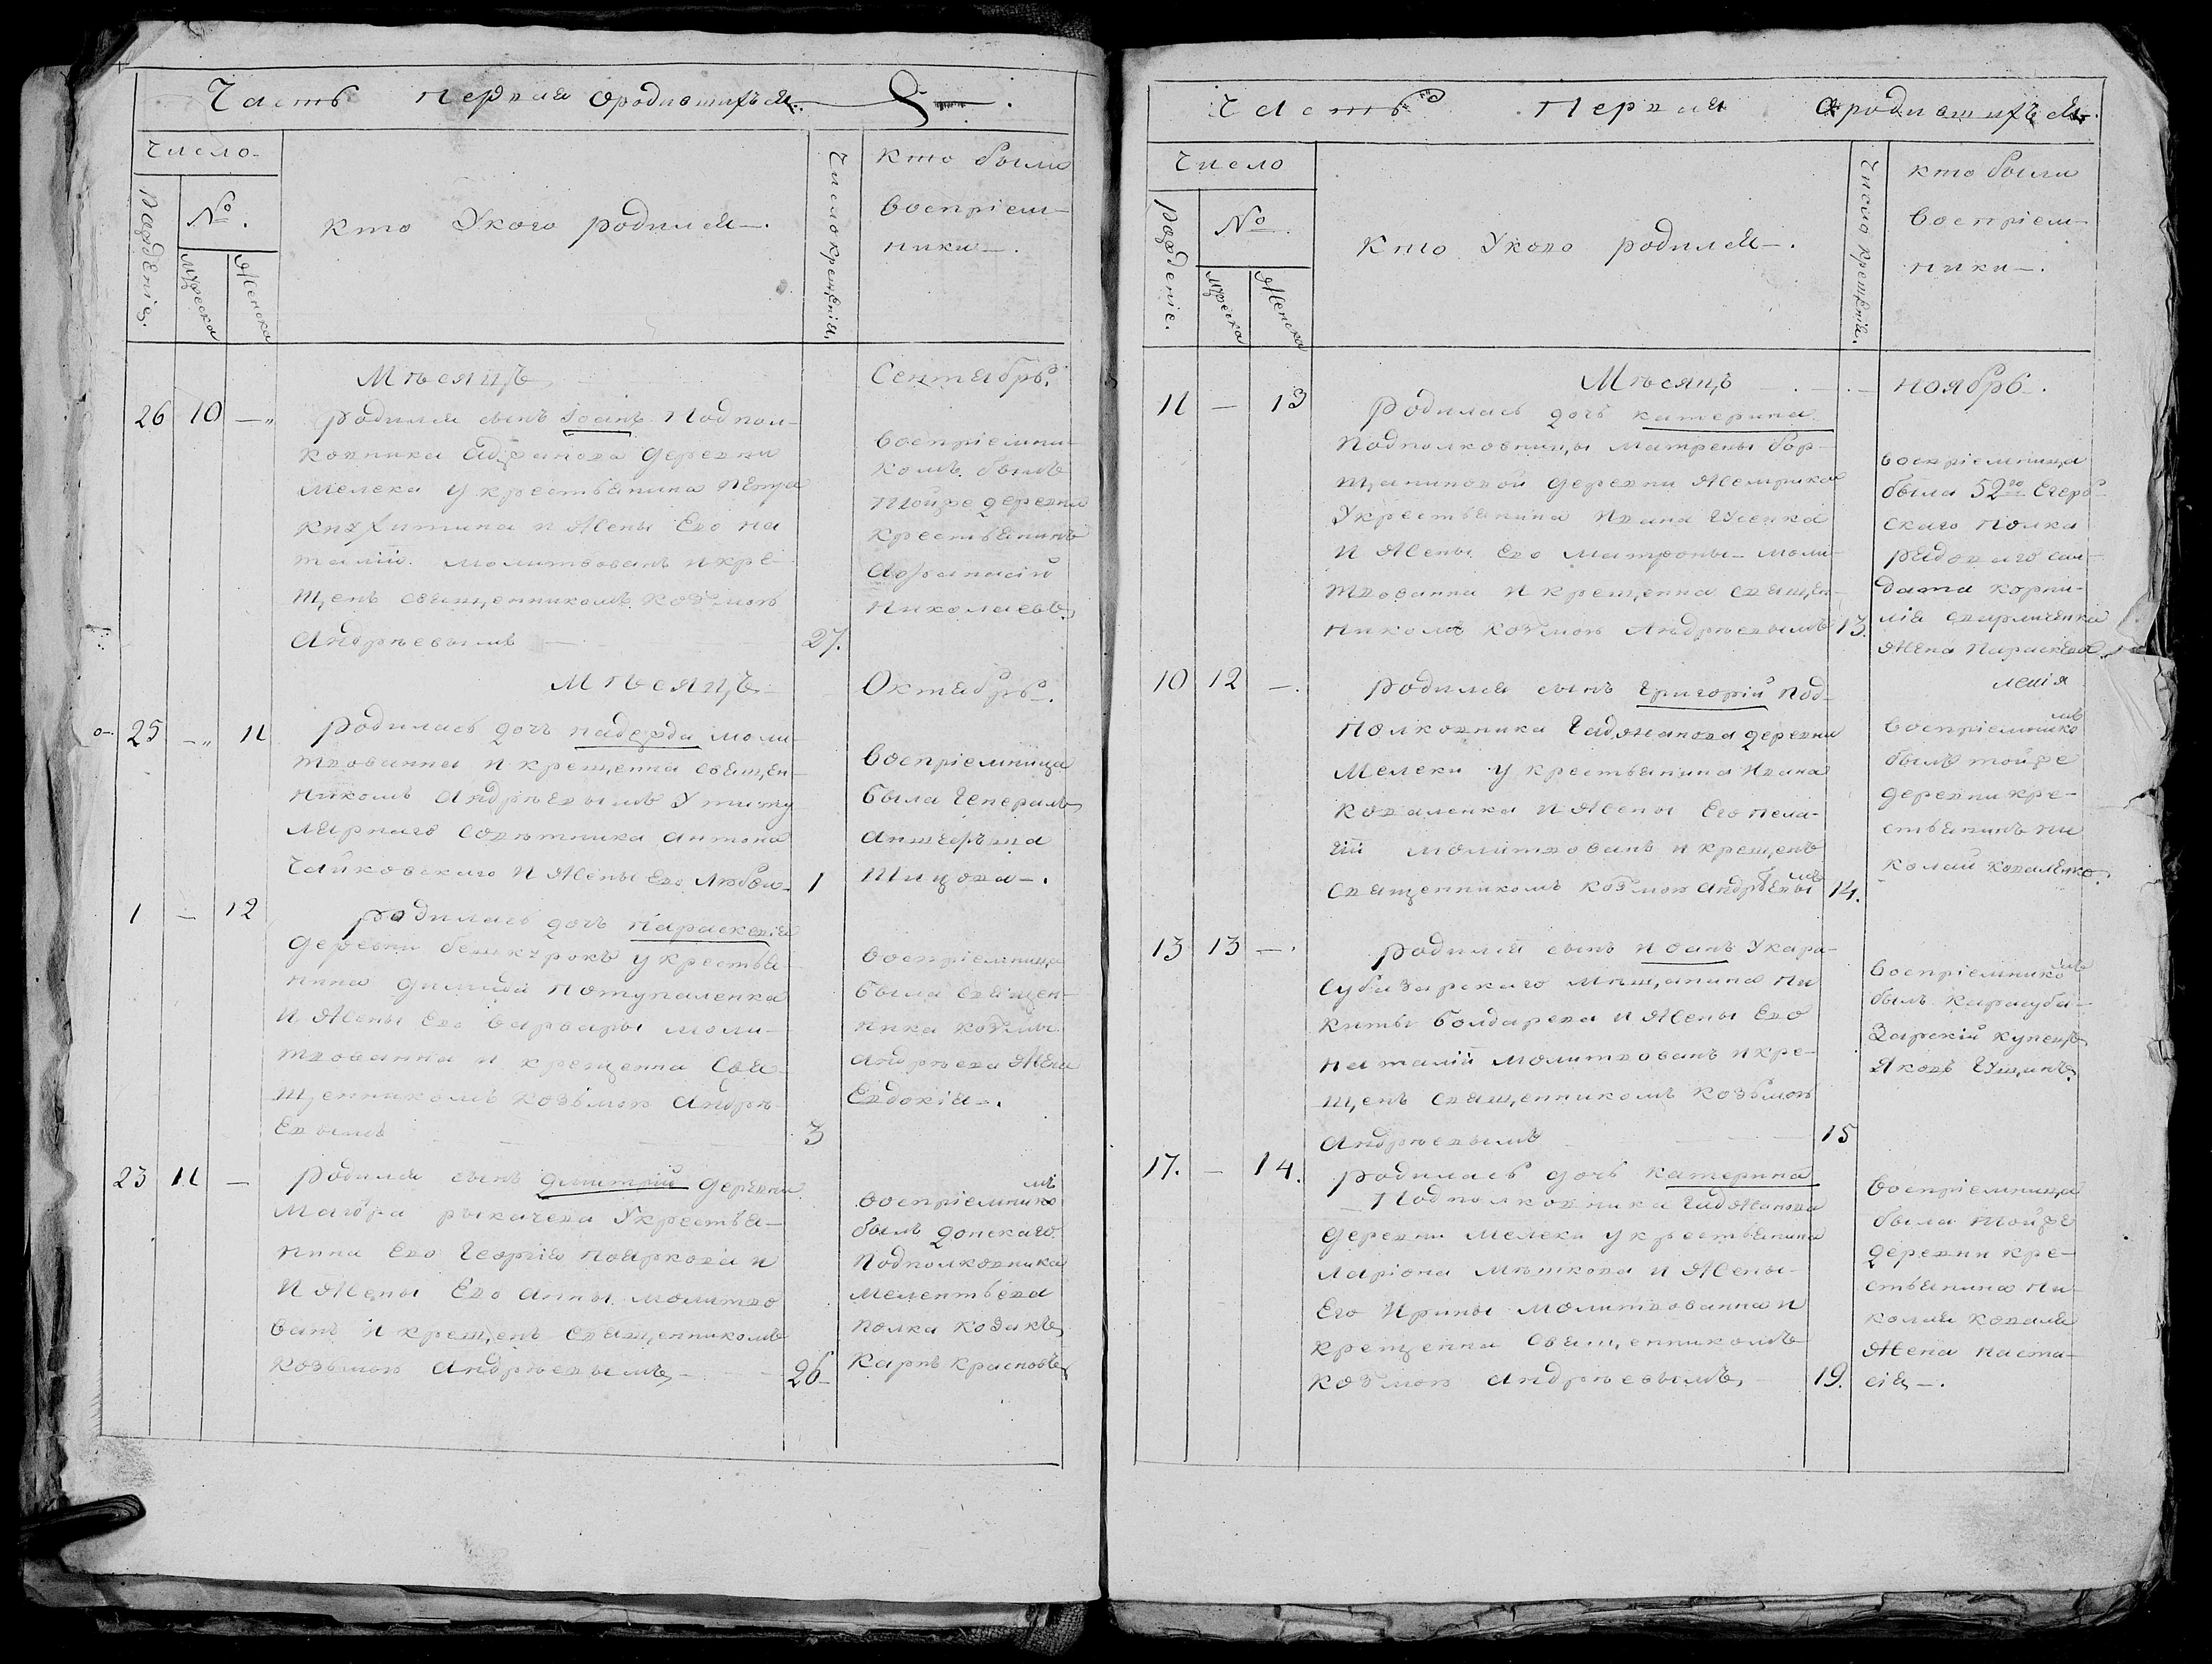 Часть первая ородившихъся.
Число
Рожденiе.
№.
Мужеска
Женска
Кто Укого родился.
Число крещенiя.
кто были
воспрiем-
ники.
Мѣсяцъ
Сентябрь.
26 10 —
родился сынъ Iоанъ Подпол-
ковника деревни
Мелеки у крестьянина Петра
и жены Его На
талiи. молитвованъ и кре-
щенъ священникомъ Козмою
Андрѣевымъ
27.
воспрiемни-
комъ былъ
тойже деревни
крестьянинъ
Афанасiй
Николаевъ
Мѣсяцъ
Октябрь.
25 — 11
родилась дочь надежда моли-
твованна и крещенна священ-
никомъ Андрѣевымъ У титу
лярнаго Совѣтника антона
Чайковскаго и жены Его Любви
1
воспрiемница
была Генералъ
аншефъша
Шицова.
1 — 12
родилась дочь параскевiя
деревни бешкурокъ у крестья-
нина демида потупаленка
и жены Его варвары моли-
твованна и крещенна Свя-
щенникомъ козьмою Андрѣ-
евымъ
3
воспрiемница
была священ-
ника козмы
андрѣева жена
Евдокiя.
23 11 —
родился сынъ димитрiй деревни
маiора рыкачева Укрестья-
нина Его Георгiя пояркова и
и жены Его анны молитво
ванъ и крещенъ священникомъ
козьмою андрѣевымъ
26
воспрiемникомъ
былъ донскаго
подполковника
мелентьева
полка козакъ
карпъ красновъ
Часть Первая ородившихъся.
Число
Рожденiе.
№.
Мужеска
Женска
Кто Укого родился.
Число крещенiя.
кто были
воспрiем-
ники.
Мѣсяцъ
ноябрь.
11 — 13
родилась дочь катерина
подполковницы матрены бор-
щаниновой деревни
Укрестьянина ивана гусенка
и жены Его матроны моли-
твованна и крещенна священ-
никомъ козмою андрѣевымъ
13.
воспрiемница
была 52го Егерь-
скаго полка
рядоваго сал-
дата корни-
лiя
жена параскева
10 12 —
родился сынъ григорiй под-
полковника Гаджанова деревни
Мелеки у крестьянина ивана
коваленка и жены Его пела-
гiи молитвованъ и крещенъ
священникомъ козмою андрѣевымъ
14.
воспрiемникомъ
былъ тойже
деревни кре-
стьянинъ ни
колай коваленко.
13 13 —
родился сынъ иоанъ Укара-
субазарскаго мѣщанина ни
киты болдарева и жены Его
наталiи молитвованъ и кре-
щенъ священникомъ козьмою
андрѣевымъ
15
воспрiемникомъ
былъ карасуба-
зарскiй купецъ
Яковъ Гущинъ.
17. — 14.
родилась дочь катерина
подполковника Гаджанова
деревни мелеки у крестьянина
ларiона мѣшкова и жены
Его ирины молитвованна и
крещенна священникомъ
козмою андрѣевымъ
19.
воспрiемница
была тойже
деревни кре-
стьянина ни-
колая коваля
жена наста-
сiя.